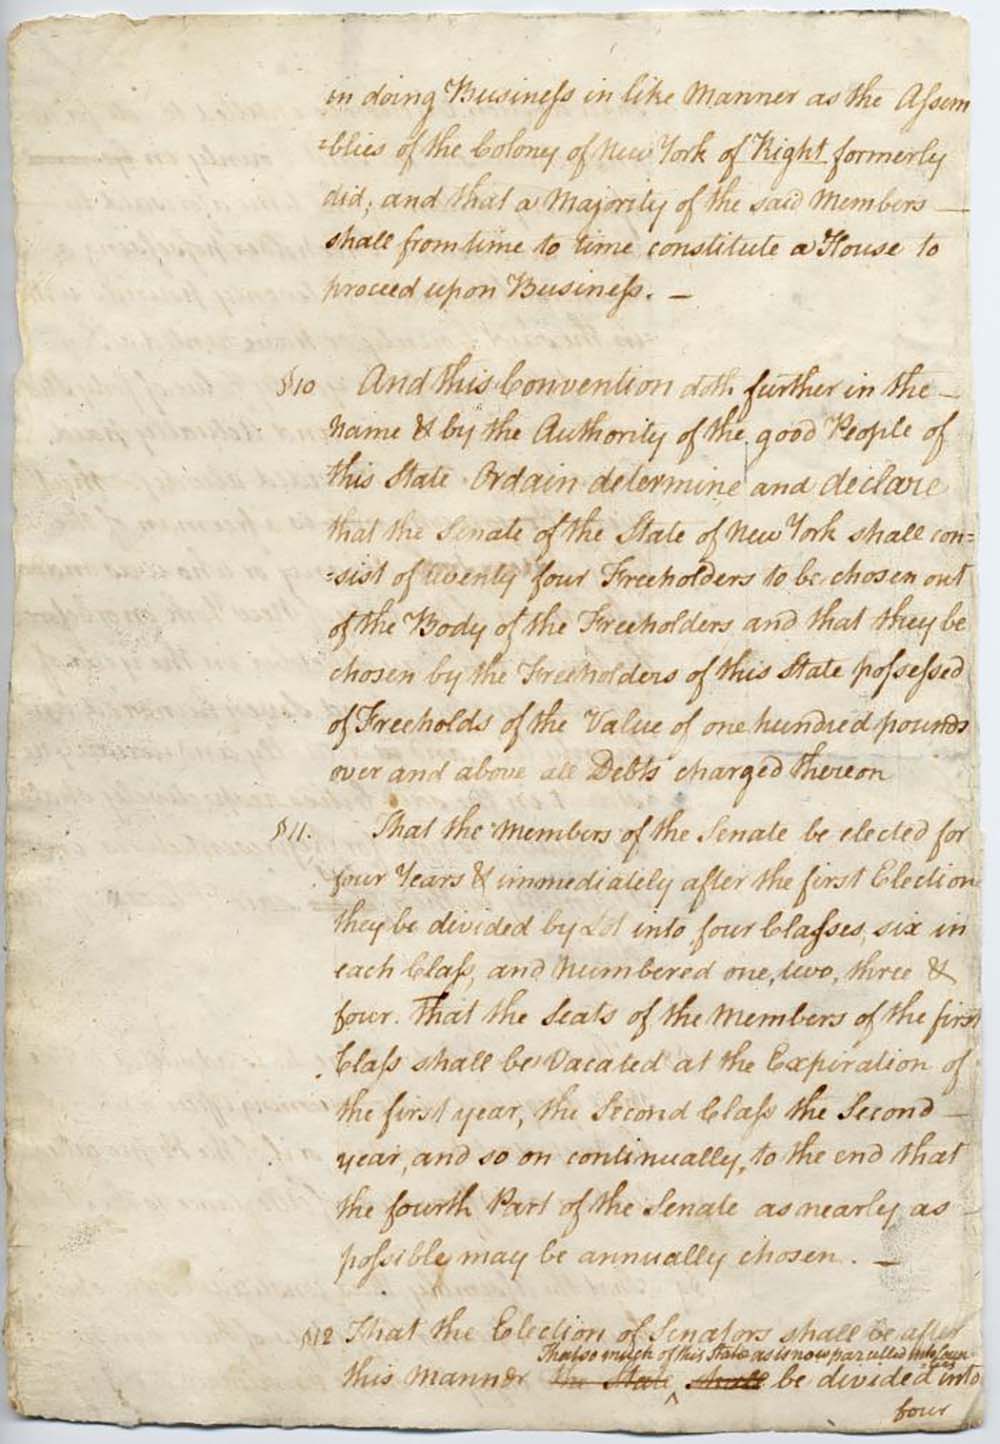 in doing Busineſs in like Manner as the Aſsem
=blies of the Colony of New York of Right formerly
did; and that a Majority of the said Members —
shall from time to time constitute a House to
proceed upon Busineſs. —
§10 And this Convention doth further in the —
Name & by the Authority of the good People of
this State Ordain determine and declare
that the Senate of the State of New York shall con=
=sist of twenty four Freeholders to be chosen out
of the Body of the Freeholders and that they be
chosen by the Freeholders of this State poſseſsed
of Freeholds of the Value of one hundred pounds
over and above all Debts charged thereon
§11. That the Members of the Senate be elected for
four Years & immediately after the first Election
they be divided by Lot into four Claſses, six in
each Claſs, and Numbered one, two, three &
four. That the Seats of the Members of the first
Claſs shall be Vacated at the Expiration of
the first year, the Second Claſs the Second —
year, and so on continually, to the end that
the fourth Part of the Senate as nearly as —
poſsible may be annually chosen. —
§12 That the Election of Senators shall be after
That so much of this State as is now parcelled into Coun
ties
this Manner the State shall be divided into
^
four